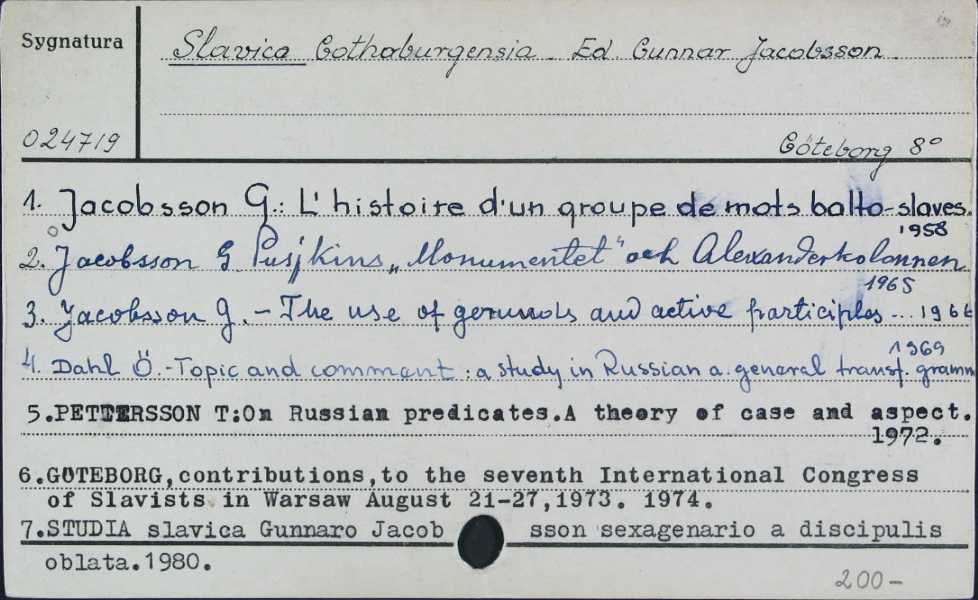 Sygnatura
Slavica Gothoburgensia. Ed. Gunnar Jacobsson.
024719
Göteborg 8°
1. Jacobsson G.: L'histoire d'un groupe de mots balto-slaves.
1958
2. Jacobsson G. Pusjkins „Monumentet" och Alexanderkolonnen
1965
3. Jacobsson G. - The use of gerunds and active participles ... 1966
1969
4. Dahl Ö. - Topic and comment: a study in Russian a. general transf. gramm
5.PETTERSSON T:On Russian predicates.A theory of case and aspect.
1972.
6.GÖTEBORG,contributions,to the seventh International Congress
of Slavists in Warsaw August 21-27,1973. 1974.
7.STUDIA slavica Gunnaro Jacob sson sexagenario a discipulis
oblata.1980.
200-